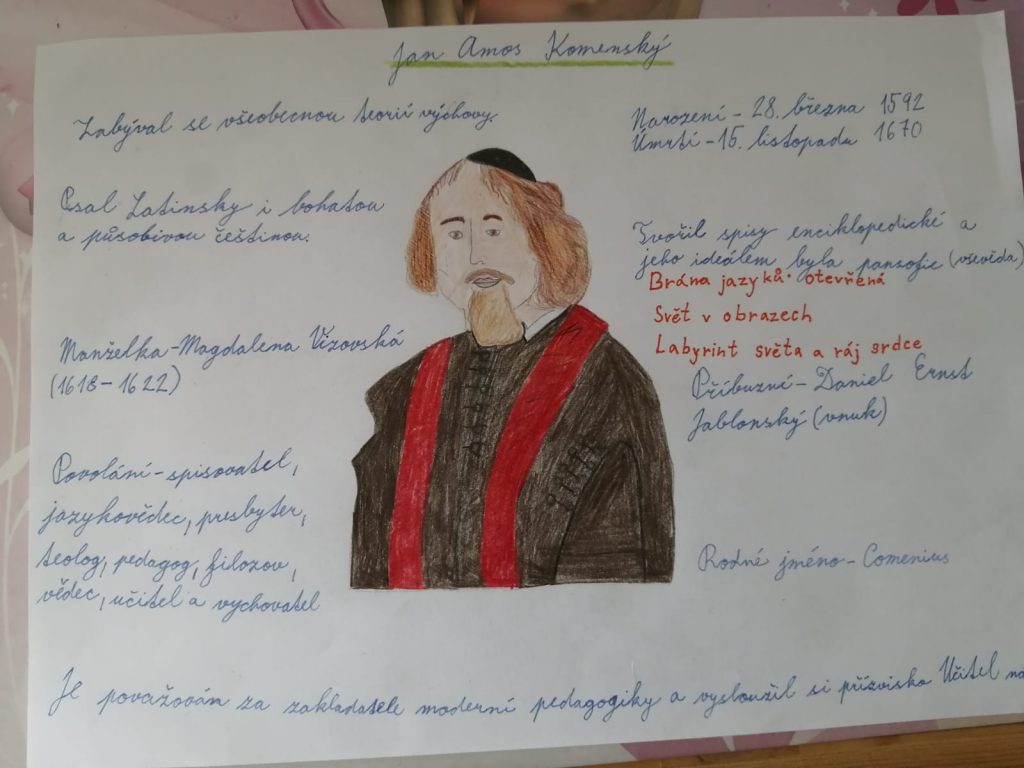 Jan Amos Komenský
Zabýval se všeobecnou teorií výchovy.
Psal Latinsky i bohatou
a působivou češtinou.
Manželka-Magdalena Vizovská
(1618-1622)
Povolání-spisovatel,
jazykovědec, presbyter,
teolog, pedagog, filozov,
vědec, učitel a vychovatel
Narození - 28. března 1592
Úmrtí - 15. listopadu 1670
Tvořil spisy enciklopedické a
jeho ideálem byla panzofie (vševěda)
Brána jazyků otevřená
Svět v obrazech
Labyrint světa a ráj srdce
Příbuzné-Daniel Ernst
Jablonský (vnuk)
Rodné jméno-Comenius
Je považován za zakladatele moderní pedagogiky a vysloužil si přízvisko Učitel